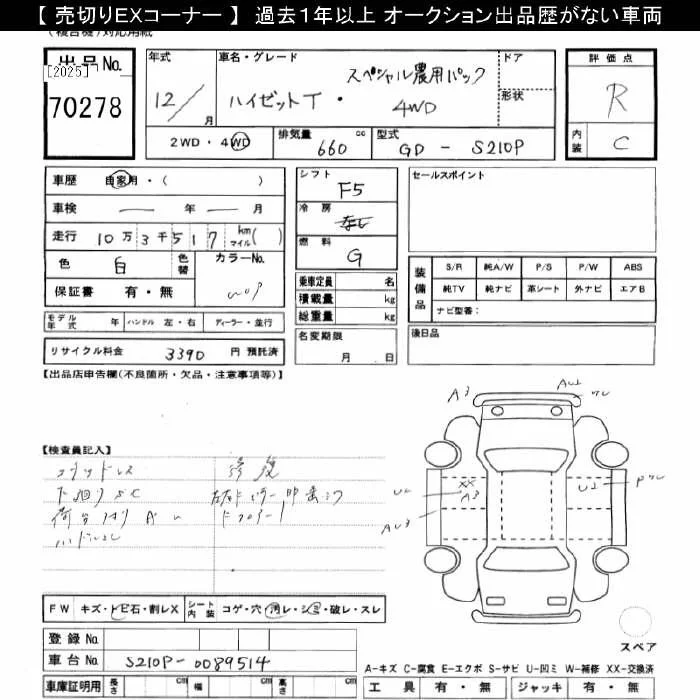 【 売切りEXコーナー 】 過去1年以上 オークション出品歴がない車両
出品No.
[2025]
70278
年式
12/
月
車名・グレード
スペシャル農用パック
ハイゼットT ・ 4WD
ドア
形状
評価点
R
内装
C
2WD・4WD
排気量
660
cc
型式
GD - S210P
車歴
自家用・( )
車検
― 年 ― 月
走行
10万3千517
km
マイル( )
色
白
色替
カラーNo.
W09
保証書
有・無
シフト
F5
冷房
なし
燃料
G
乗車定員
名
積載量
kg
総重量
kg
セールスポイント
装備品
S/R 純A/W P/S P/W ABS
純TV 純ナビ 革シート 外ナビ エアB
ナビ型番:
モデル年式
年
ハンドル 左・右
ディーラー・並行
リサイクル料金
3390
円 預託済
名変期限
月 日
後日品
【出品店申告欄(不良箇所・欠品・注意事項等)】
【検査員記入】
下回りSC
修復
A3
AU2
U2
XX
A3
U2
AU3
FW
キズ・トビ石・割レX
シート内装
コゲ・穴・汚レ・シミ・破レ・スレ
登録No.
車台No.
S210P-0089514
車庫証明用
長さ
cm
幅
cm
高さ
cm
スペア
A-キズ C-腐食 E-エクボ S-サビ U-凹ミ W-補修 XX-交換済
工具 有・無
ジャッキ 有・無